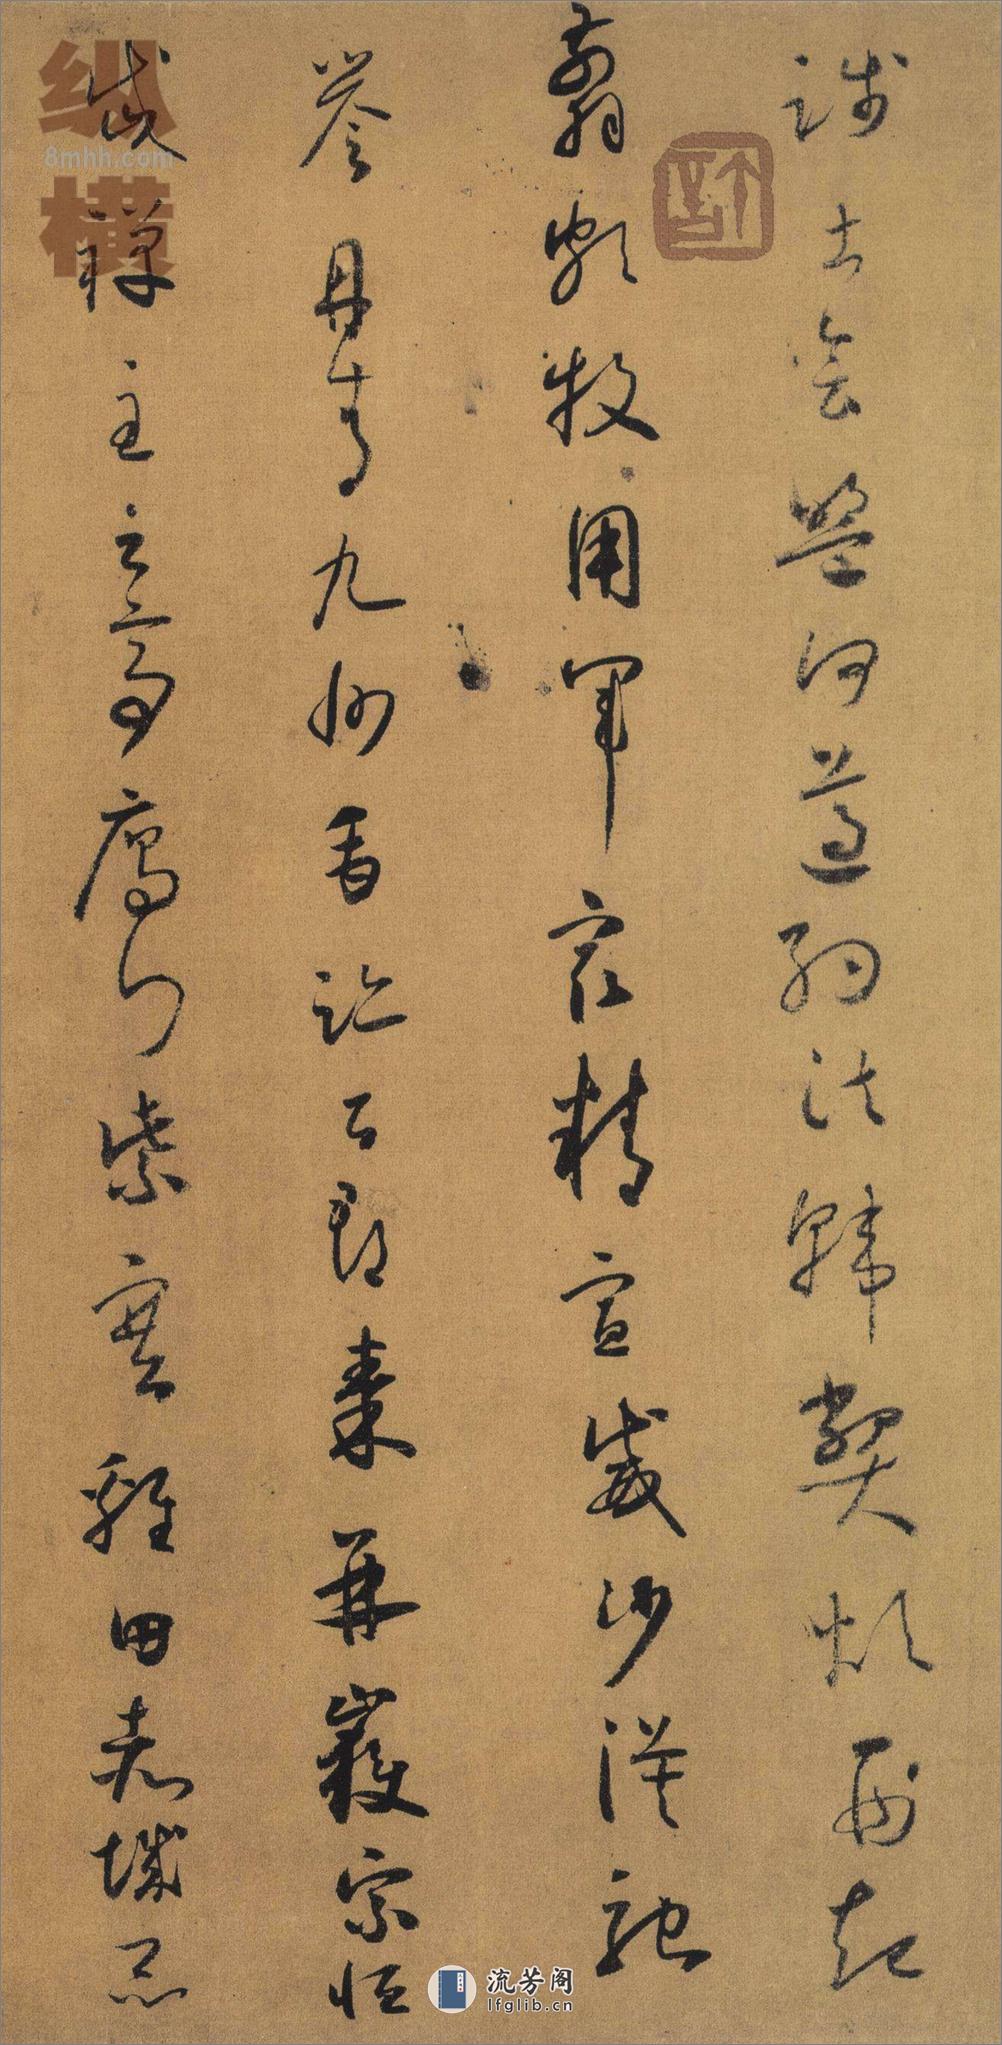 踐土會盟何遵約法韓弊煩刑起
翦頗牧用軍最精宣威沙漠馳
譽丹青九州禹跡百郡秦并嶽宗恒
岱禪主云亭雁門紫塞雞田赤城昆
纵横
8mhh.com
流芳阁
lfglib.cn